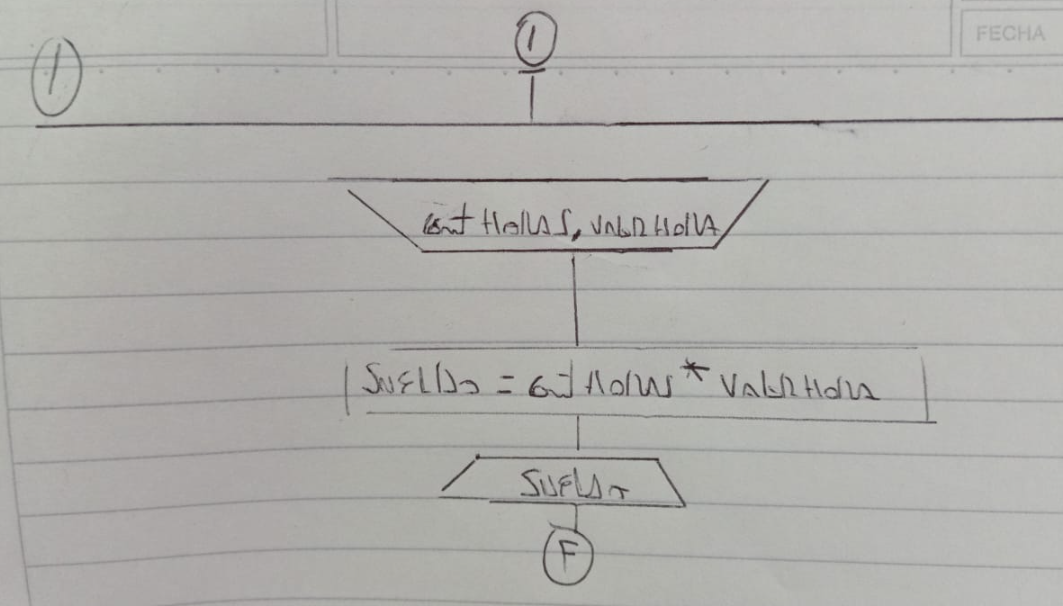 FECHA
1
1
cant HORAS, valor HORA
SUELDO = cant HORAS * Valor HORA
SUELDO
F